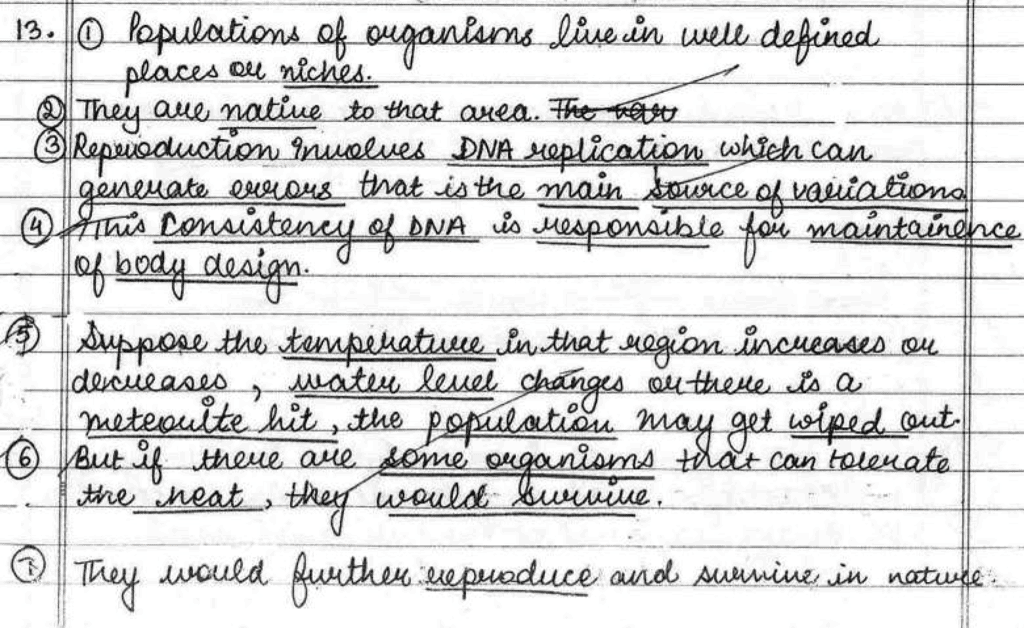 13. ① Populations of organisms live in well defined
places or niches.
② They are native to that area. The
③ Reproduction involves DNA replication which can
generate errors that is the main source of variations
④ This Consistency of DNA is responsible for maintainence
of body design.
⑤ Suppose the temperature in that region increases or
decreases, water level changes or there is a
meteorite hit, the population may get wiped out.
⑥ But if there are some organisms that can tolerate
the heat, they would survive.
⑦ They would further reproduce and survive in nature.